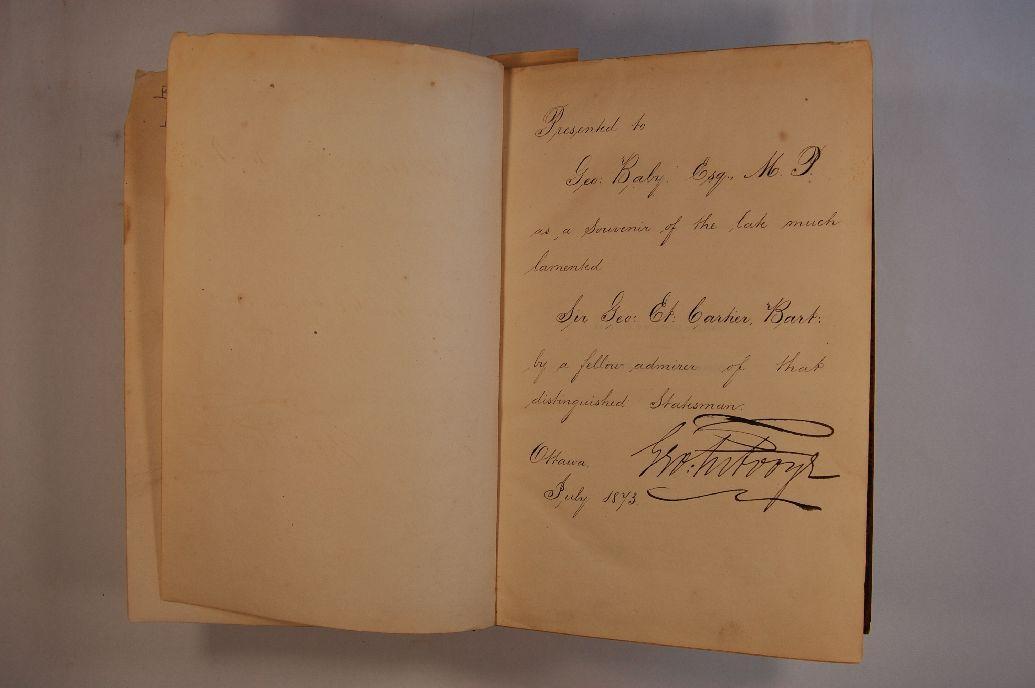 Presented to
Geo: Baby. Esq., M. P.
as a Souvenir of the late much
lamented
Sir Geo: Et: Cartier, Bart:
by a fellow admirer of that
distinguished Statesman.
Ottawa,
July 1873.